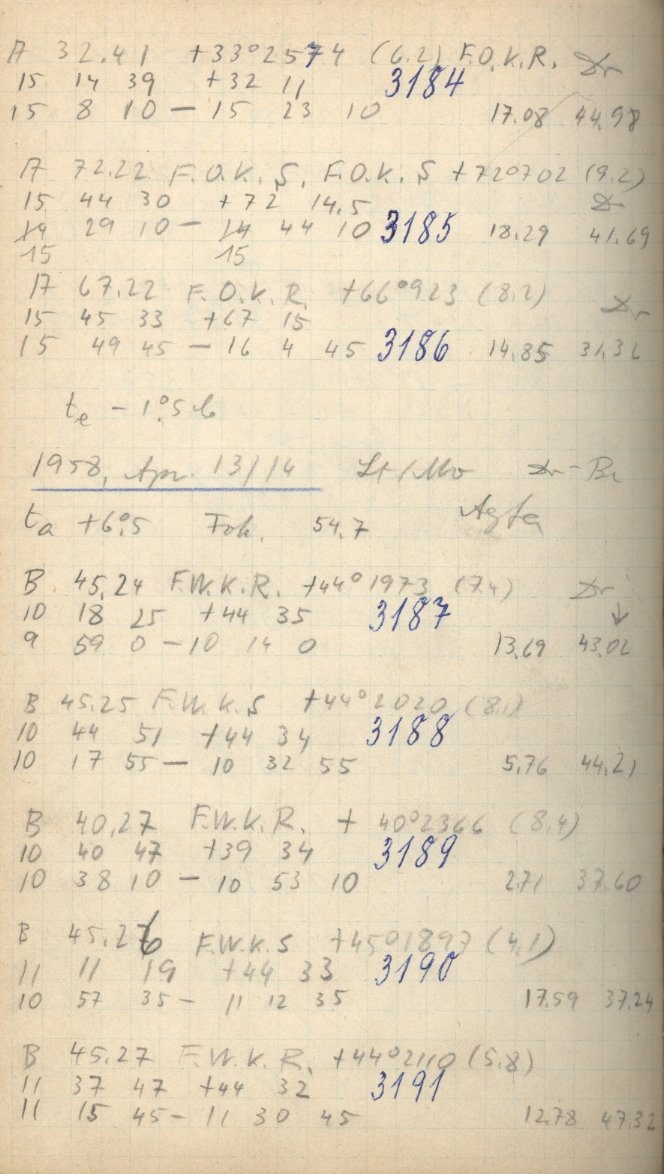 A 32.41 +33°2574 (6.2) F.O.K.R. Dr
15 14 39 +32 11 3184
15 8 10 — 15 23 10 17.08 44.98
A 72.22 F.O.K.S. F.O.K.S +72°702 (9.2)
15 44 30 +72 14.5 Dr
14 29 10 — 14 44 10 3185 18.29 41.69
15 15
A 67.22 F.O.K.R. +66°923 (8.2) Dr
15 45 33 +67 15
15 49 45 — 16 4 45 3186 14.85 31.36
te - 1°.5 b
1958, Apr. 13/14 St/Mo Dr-Br
ta +6°.5 Fok. 54.7 Agfa
B 45.24 F.W.K.R. +44°1973 (7.4) Dr
10 18 25 +44 35 3187 ↓
9 59 0 — 10 14 0 13.69 43.02
B 45.25 F.W.K.S +44°2020 (8.1)
10 44 51 +44 34 3188
10 17 55 — 10 32 55 5.76 44.21
B 40.27 F.W.K.R. + 40°2366 (8.4)
10 40 47 +39 34 3189
10 38 10 — 10 53 10 2.71 37.60
B 45.26 F.W.K.S +45°1897 (4.1)
11 11 19 +44 33 3190
10 57 35 — 11 12 35 17.59 37.24
B 45.27 F.W.K.R. +44°2110 (5.8)
11 37 47 +44 32 3191
11 15 45 — 11 30 45 12.78 47.32